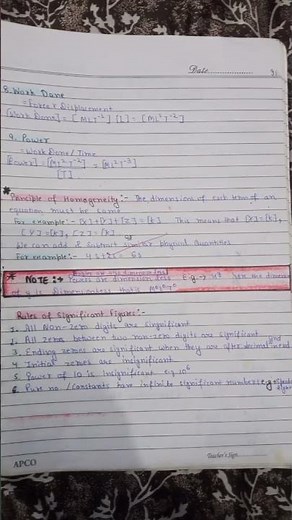 Date
8. Work Done
= Force x Displacement
[Work Done] = [MLT⁻²] [L] = [ML²T⁻²]
9. Power
= Work Done / Time
[Power] = [ML²T⁻²] = [ML²T⁻³]
[T]
* Principle of Homogeneity :- The dimensions of each term of an
equation must be same
For example :- [x]+[Y]+[Z] = [k] This means that [x]=[k],
[Y]=[k], [Z]=[k]
We can add & substract similar physical quantities
For example :- 4s+2s = 6s
* NOTE :→ Powers are dimensionless E.g. → here the dimension
of y is dimensionless that's M⁰L⁰T⁰
Rules of Significant Figures :-
1. All Non-zero digits are singificant
2. All zeros between two non-zero digits are significant
3. Ending zeroes are significant when they are after decimal
4. Initial zeroes are insignificant
5. Power of 10 is Insignificant e.g. 10⁶
6. Pure no./constants have infinite significant numbers e.g.
Teacher's Sign
APCO